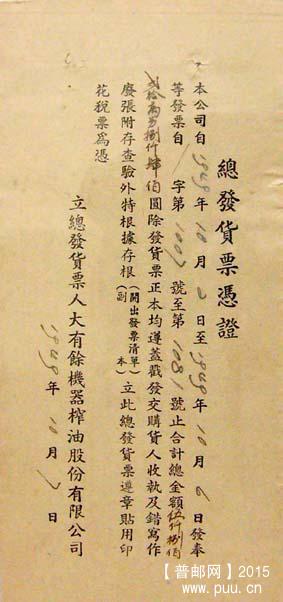 總發貨票憑證
本公司自1949年10月2日至1949年10月6日發奉
等發票自/字第1007號至第1081號止合計總金額伍仟捌佰
貳拾萬另捌仟肆佰圓除發貨票正本均遵蓋戳發交購貨人收執及錯寫作
廢張附存查驗外特根據存根(開出發票清單副本)立此總發貨票遵章貼用印
花稅票爲憑
立總發貨票人大有餘機器榨油股份有限公司
1949年10月7日
【普邮网】2015
www.puu.cn